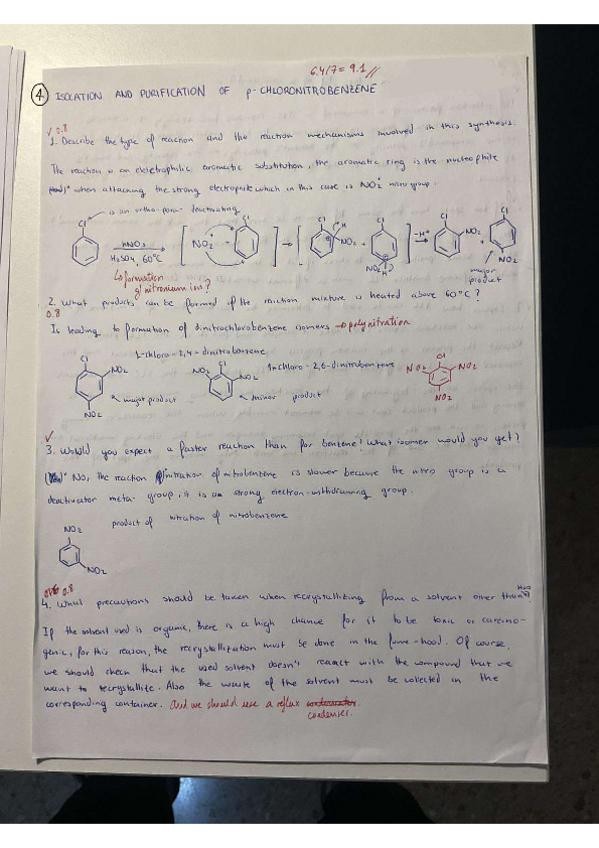 6.4/7 = 9.1 //
④ ISOLATION AND PURIFICATION OF p-CHLORONITROBENZENE
✓ 0.8
1. Describe the type of reaction and the reaction mechanisms involved in this synthesis.
The reaction is an electrophilic aromatic substitution, the aromatic ring is the nucleophile
when attacking the strong electrophile which in this case is NO₂⁺ nitro group.
is an ortho-para- deactivating
Cl HNO₃ H₂SO₄, 60°C [ NO₂⁺ Cl ] → [ Cl H NO₂ + Cl NO₂ H ] -H⁺ → Cl NO₂ + Cl NO₂
major product
↳ formation of nitronium ions?
2. What products can be formed if the reaction mixture is heated above 60°C?
0.8
Is leading to formation of dinitrochlorobenzene isomers → polynitration
1-chloro-2,4-dinitrobenzene
Cl NO₂ NO₂ major product
NO₂ Cl NO₂ minor product
1-chloro-2,6-dinitrobenzene
NO₂ Cl NO₂ NO₂
✓
3. Would you expect a faster reaction than for benzene? What isomer would you get?
No, the reaction nitration of nitrobenzene is slower because the nitro group is a
deactivator meta- group, it is a strong electron-withdrawing group.
product of nitration of nitrobenzene
NO₂ NO₂
0.8
4. What precautions should be taken when recrystallizing from a solvent other than H₂O?
If the solvent used is organic, there is a high chance for it to be toxic or carcino-
genic, for this reason, the recrystallization must be done in the fume-hood. Of course,
we should check that the used solvent doesn't react with the compound that we
want to recrystallize. Also the waste of the solvent must be collected in the
corresponding container. and we should use a reflux
condenser.